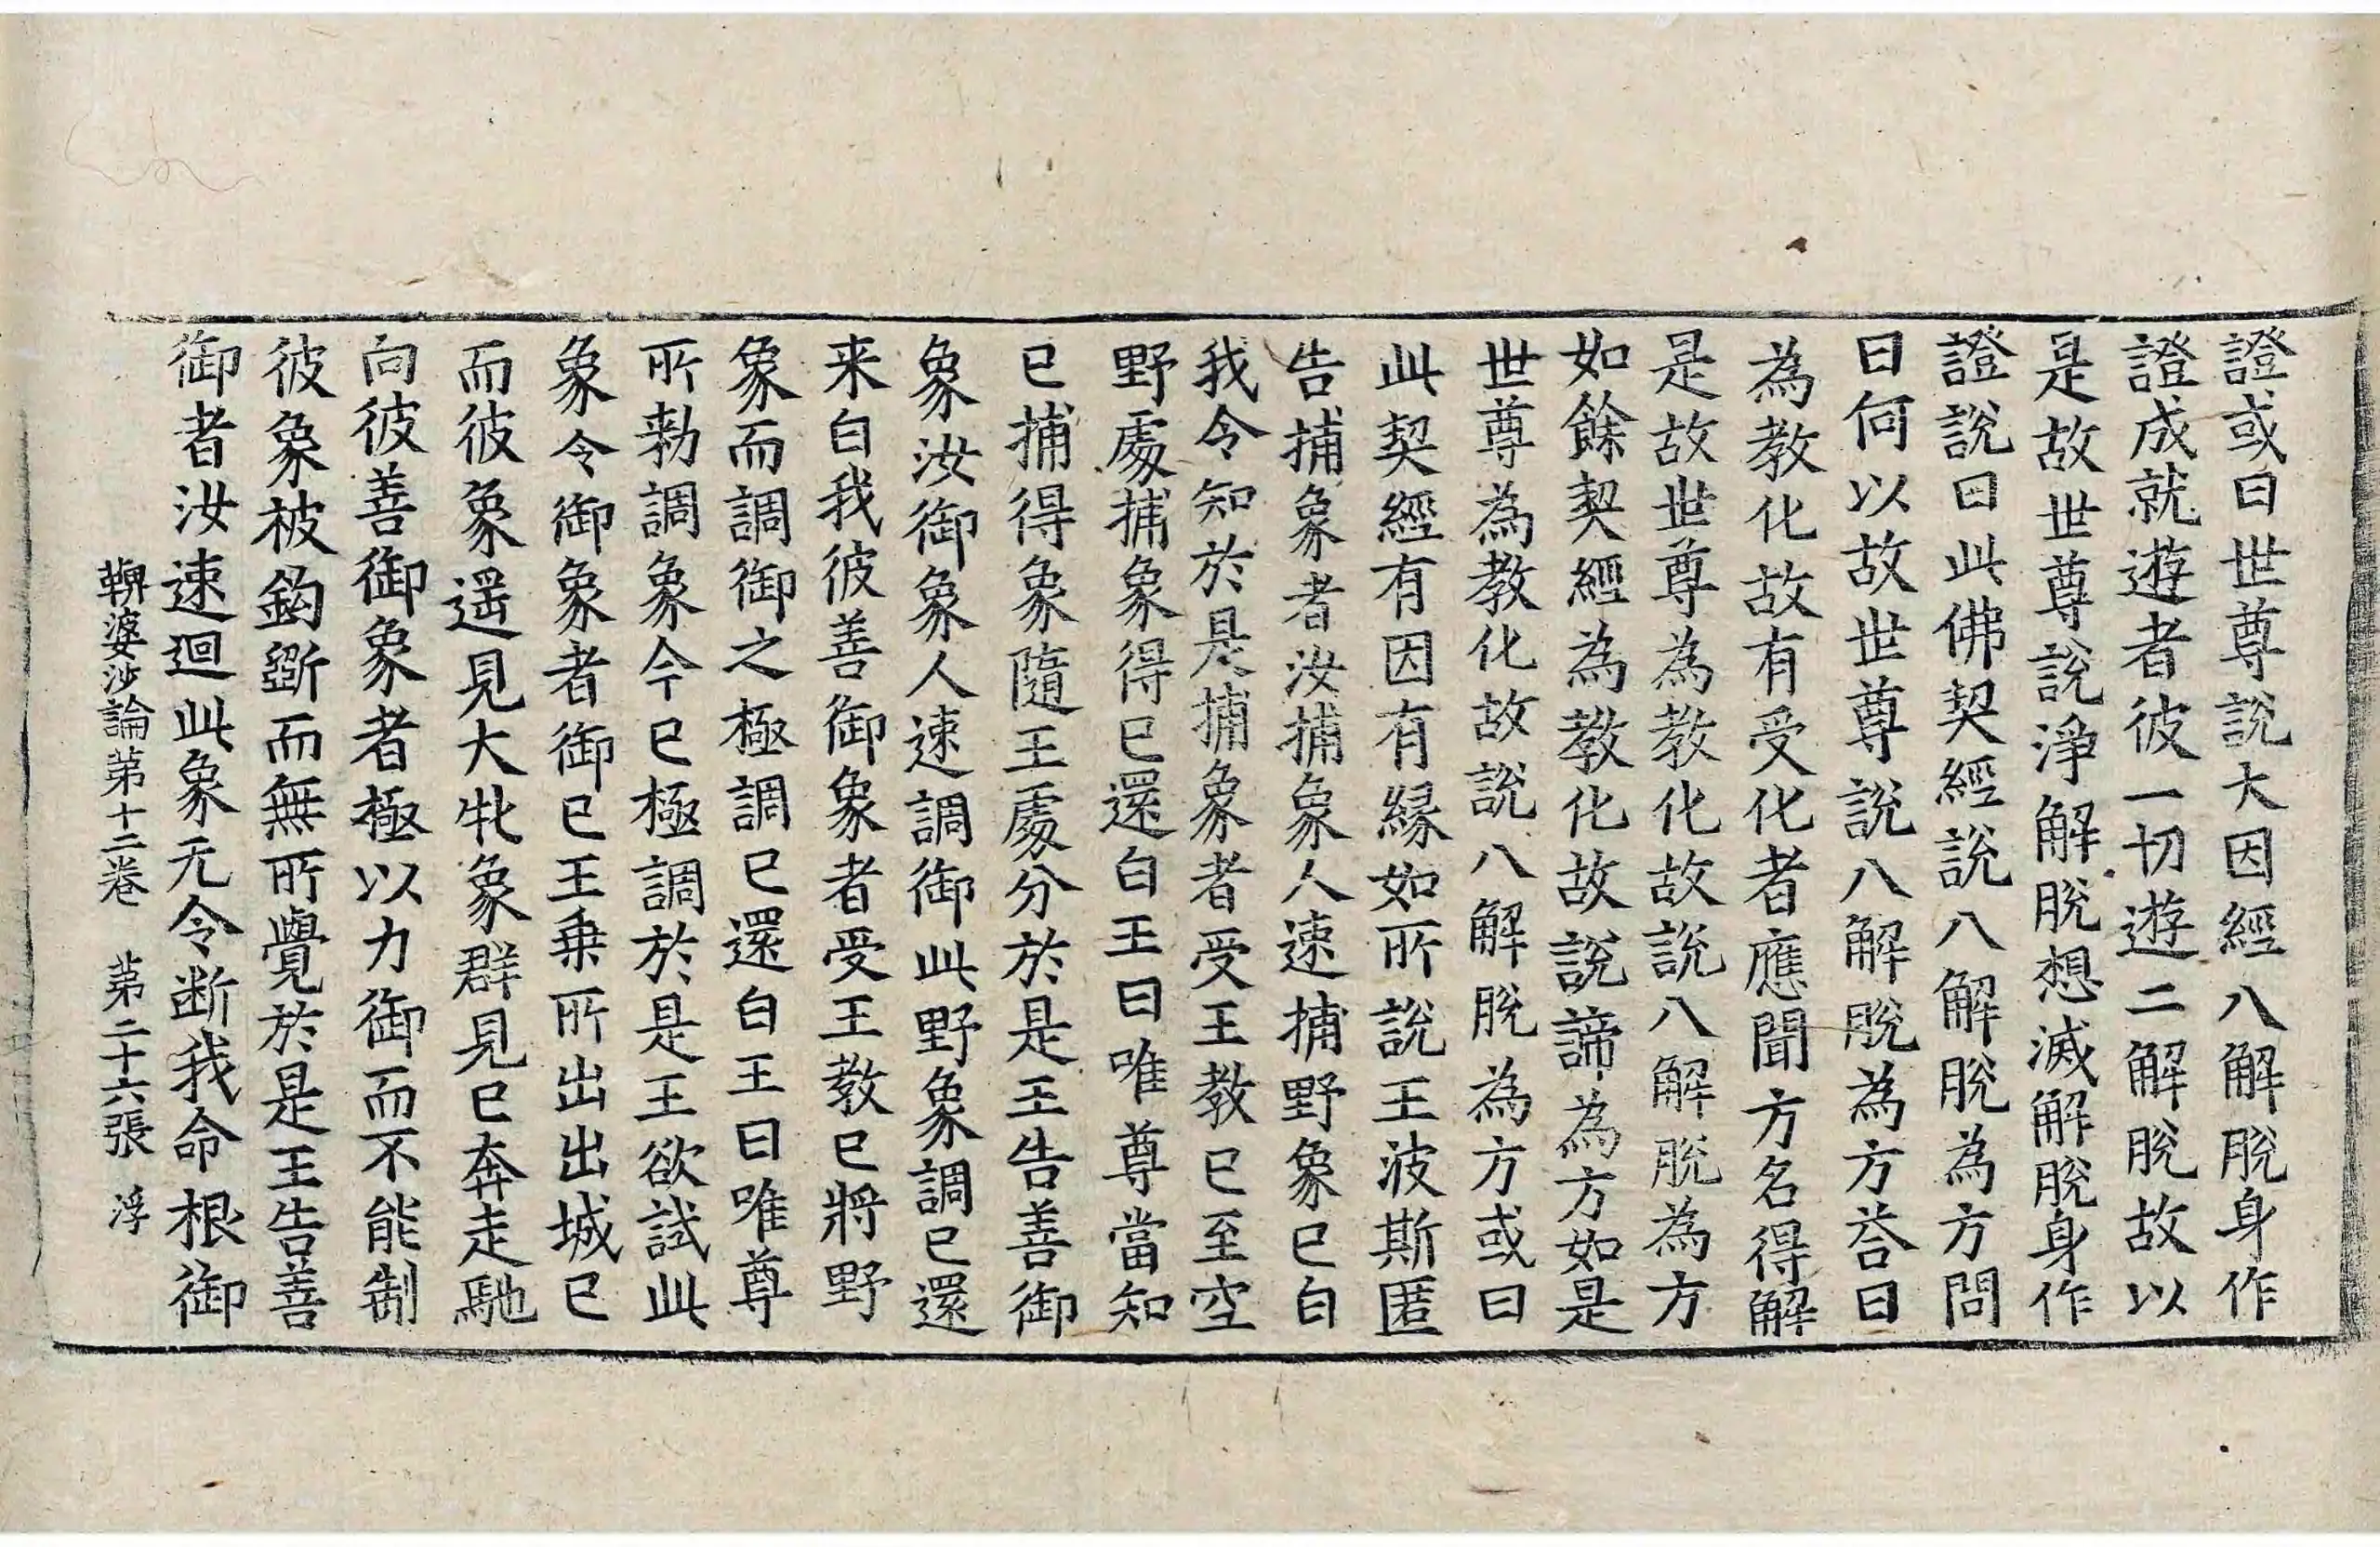 證或曰世尊說大因經八解脫身作
證成就遊者彼一切遊二解脫故以
是故世尊說淨解脫想滅解脫身作
證說曰此佛契經說八解脫為方問
曰何以故世尊說八解脫為方荅曰
為教化故有受化者應聞方名得解
是故世尊為教化故說八解脫為方
如餘契經為教化故說諦為方如是
世尊為教化故說八解脫為方或曰
此契經有因有緣如所說王波斯匿
告捕象者汝捕象人速捕野象已白
我令知於是捕象者受王教已至空
野處捕象得已還白王曰唯尊當知
已捕得象隨王處分於是王告善御
象汝御象人速調御此野象調已還
来白我彼善御象者受王教已將野
象而調御之極調已還白王曰唯尊
所勑調象今已極調於是王欲試此
象令御象者御已王乗所出出城已
而彼象遥見大牝象群見已奔走馳
向彼善御象者極以力御而不能制
彼象被鈎斷而無所覺於是王告善
御者汝速迴此象元令断我命根御
鞞婆沙論第十二卷 第二十六張 浮